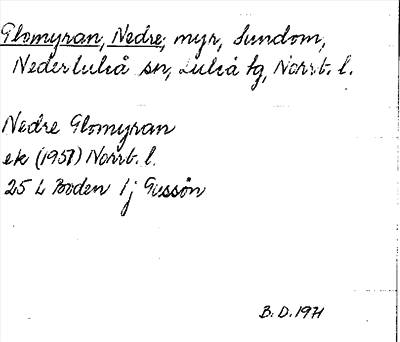 Glomyran, Nedre, myr, Sundom,
Nederluleå sn, Luleå tg, Norrb. l.
Nedre Glomyran
ek (1957) Norrb. l.
25 L Boden 1j Gussön
B. D. 1971